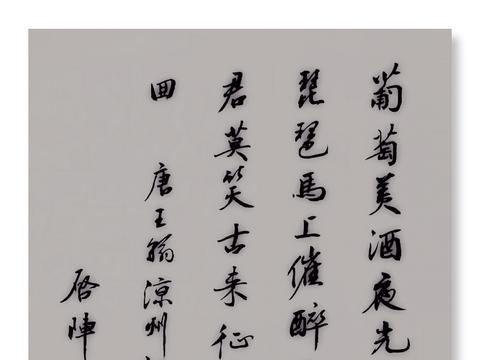 葡萄美酒夜光
琵琶馬上催醉
君莫笑古来征
囬 唐王翰涼州
启陣